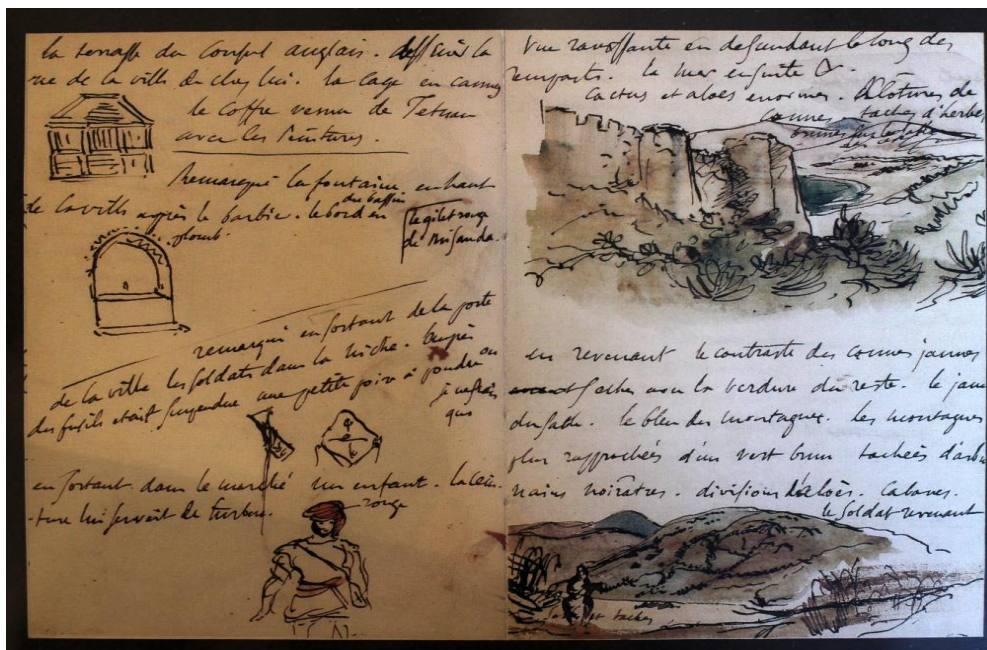 la terrasse du Consul anglais. dessiné la
vue de la ville de chez lui. la cage en cannes
le coffre venu de Tetuan
avec les Peintures.
Remarqué la fontaine en haut
du bassin
de la ville après le barbier. le bord en
plomb.
le gilet rouge
de
remarqué en sortant de la porte
de la ville les soldats dans la niche. Auprès
des fusils était suspendue une petite poire à poudre ou
je ne sais
quoi
en sortant dans le marché un enfant. la cein-
-ture lui servait de turban.
rouge
Vue ravissante en descendant le long des
remparts. la mer ensuite &.
Cactus et aloès enormes. Clôtures de
cannes, taches d'herbes
brunes sur le
en revenant le contraste des cannes jaunes
seches avec la verdure du reste. le jaune
du sable. le bleu des montagnes. les montagnes
plus rapprochées d'un vert brun tachées d'arbres
nains noirâtres. division d'aloès. Cabanes.
le soldat revenant
taches